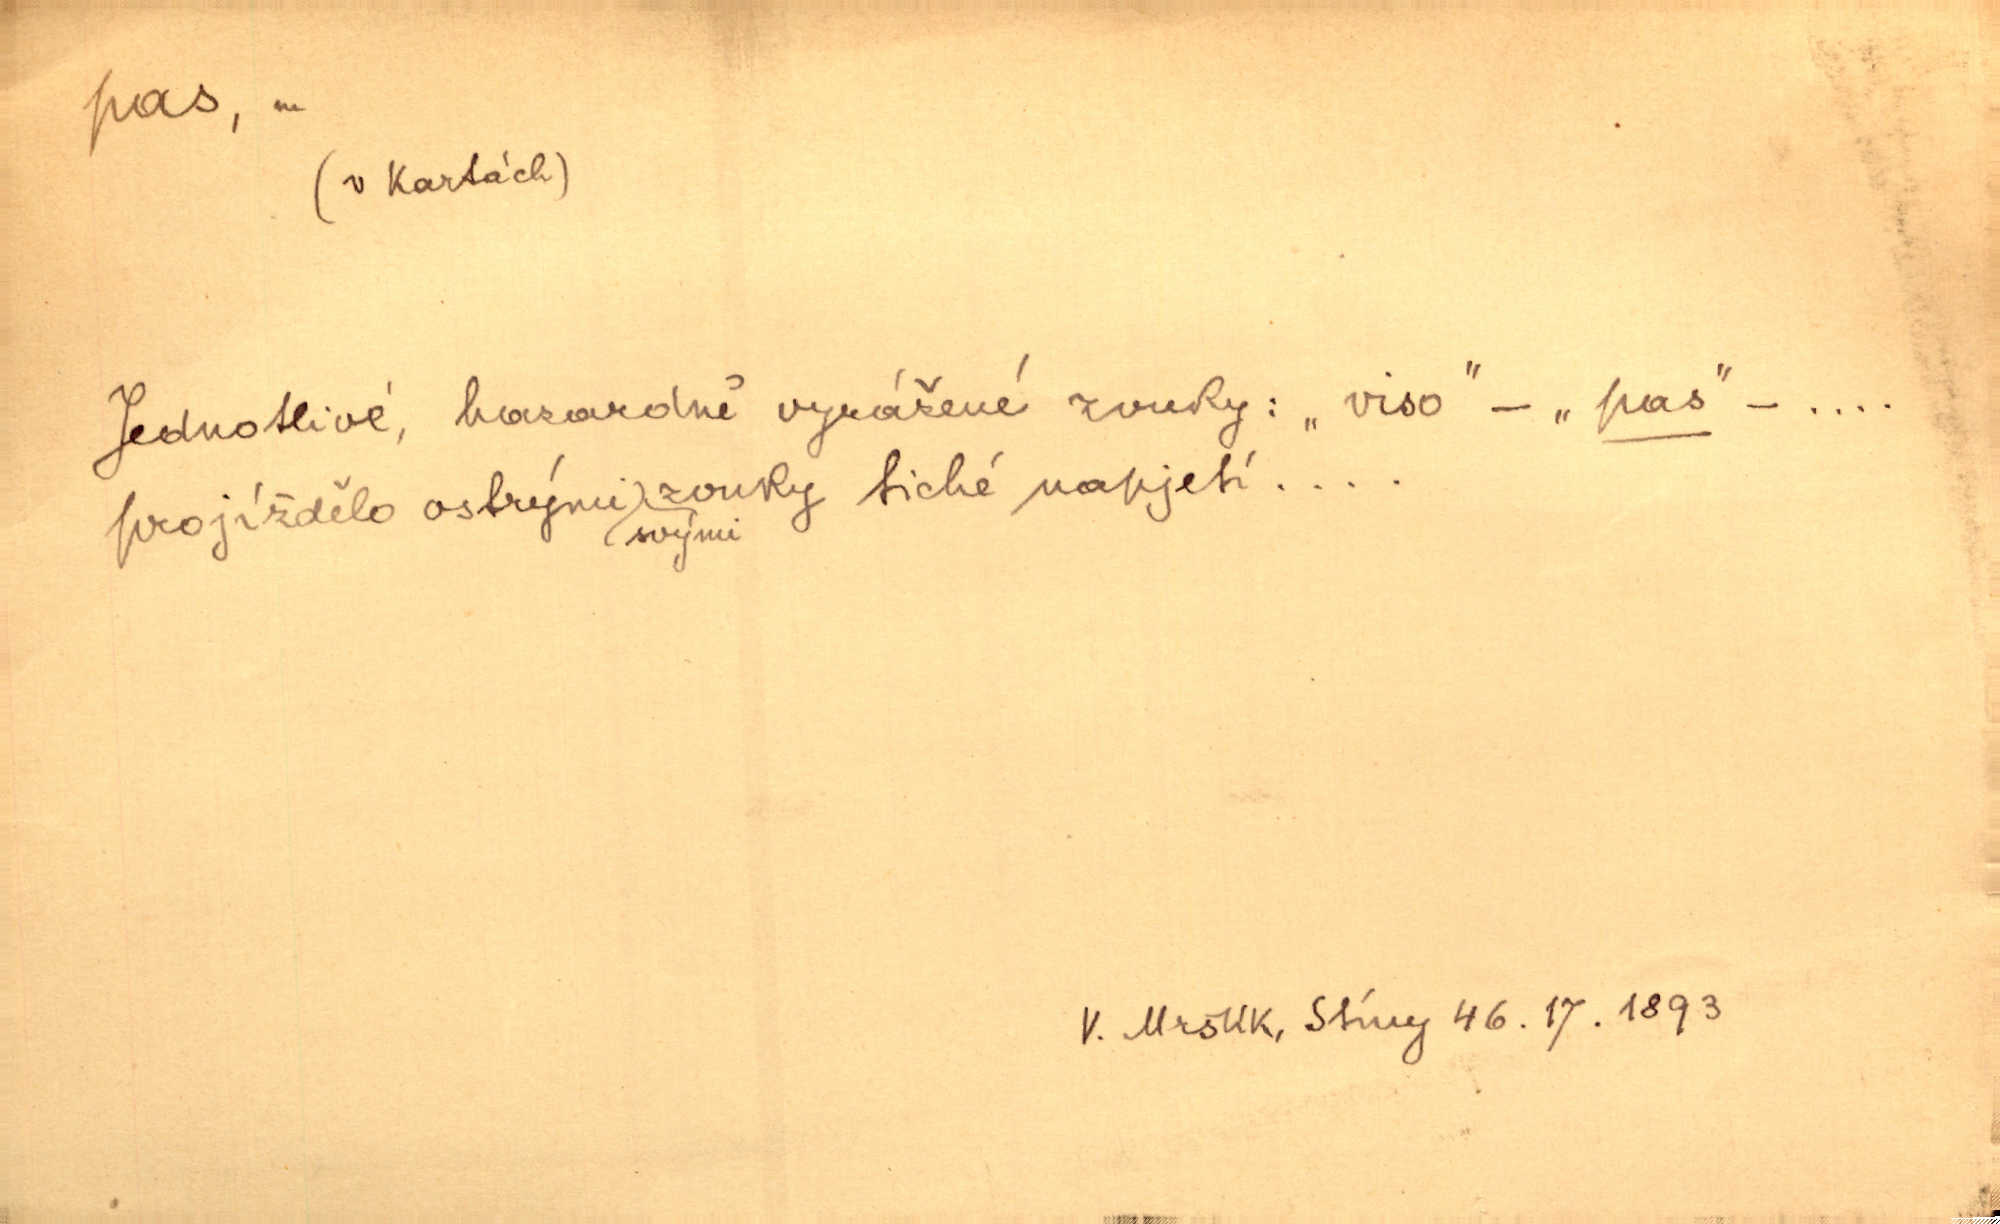 pas, m
(v kartách)
Jednotlivé, hasardně vyrážené zvuky: „viso" – „pas" – ....
projíždělo ostrými svými zvuky tiché napjetí....
V. Mrštík, Stíny 46.17.1893